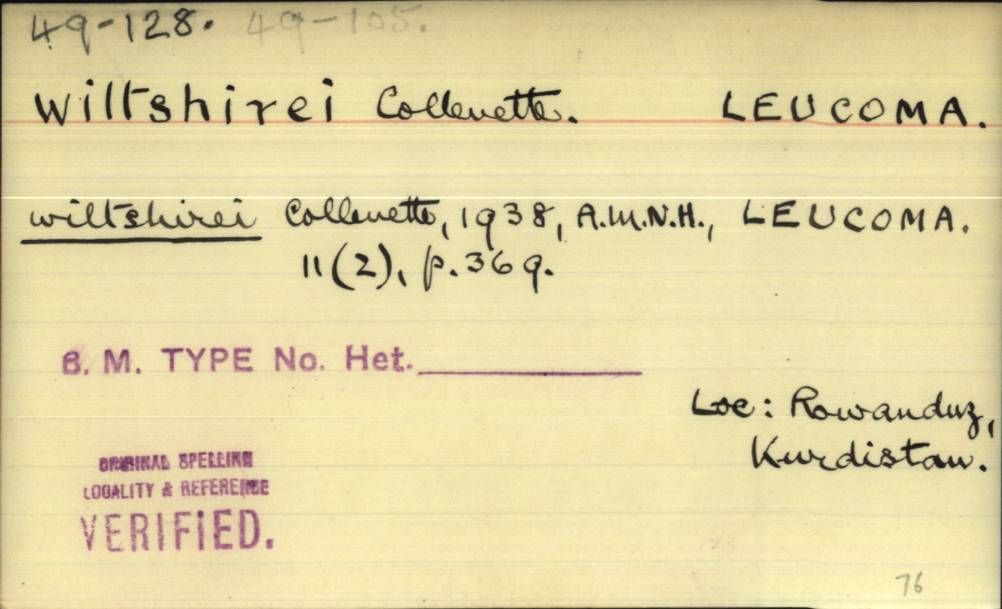 49-128. 49-105.
wiltshirei Collenette. LEUCOMA.
wiltshirei Collenette, 1938, A.M.N.H., LEUCOMA.
11(2), p.369.
B. M. TYPE No. Het.
Loc: Rowanduz,
Kurdistan.
ORIGINAL SPELLING
LOCALITY & REFERENCE
VERIFIED.
76